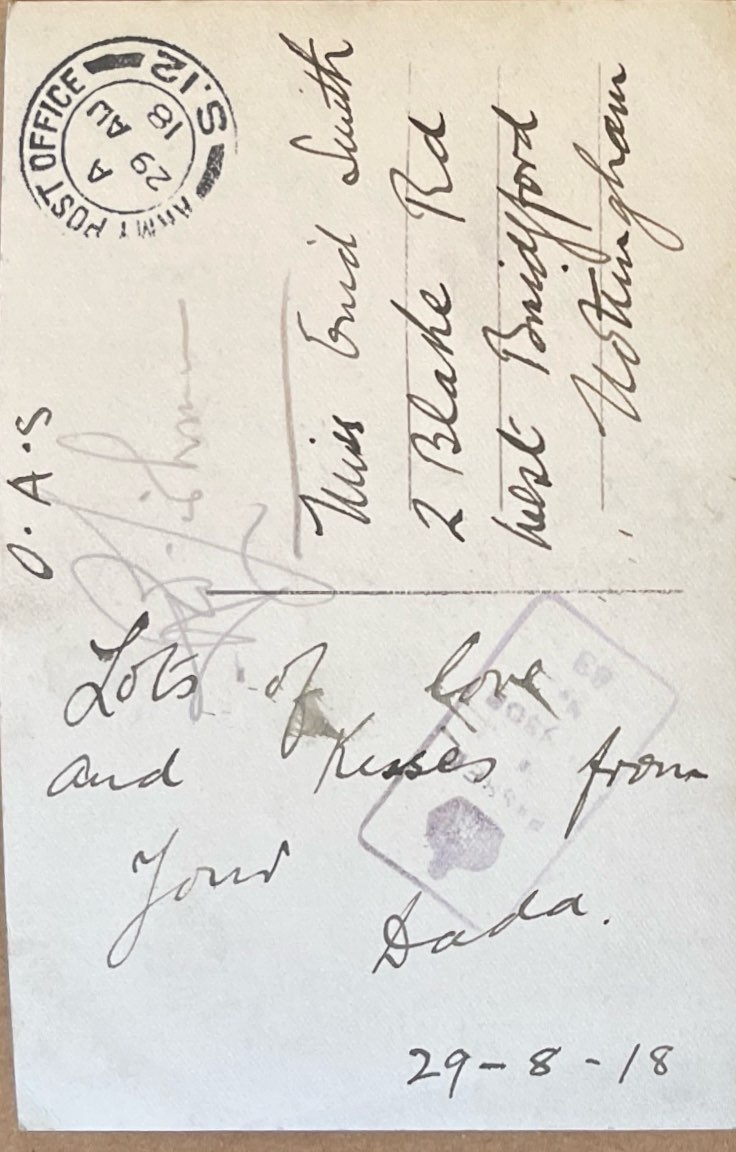 ARMY POST OFFICE S.12
A
29 AU
18
O.A.S
Miss Enid Smith
2 Blake Rd
West Bridgford
Nottingham
Lots of love
and Kisses from
Your
Dada.
29-8-18